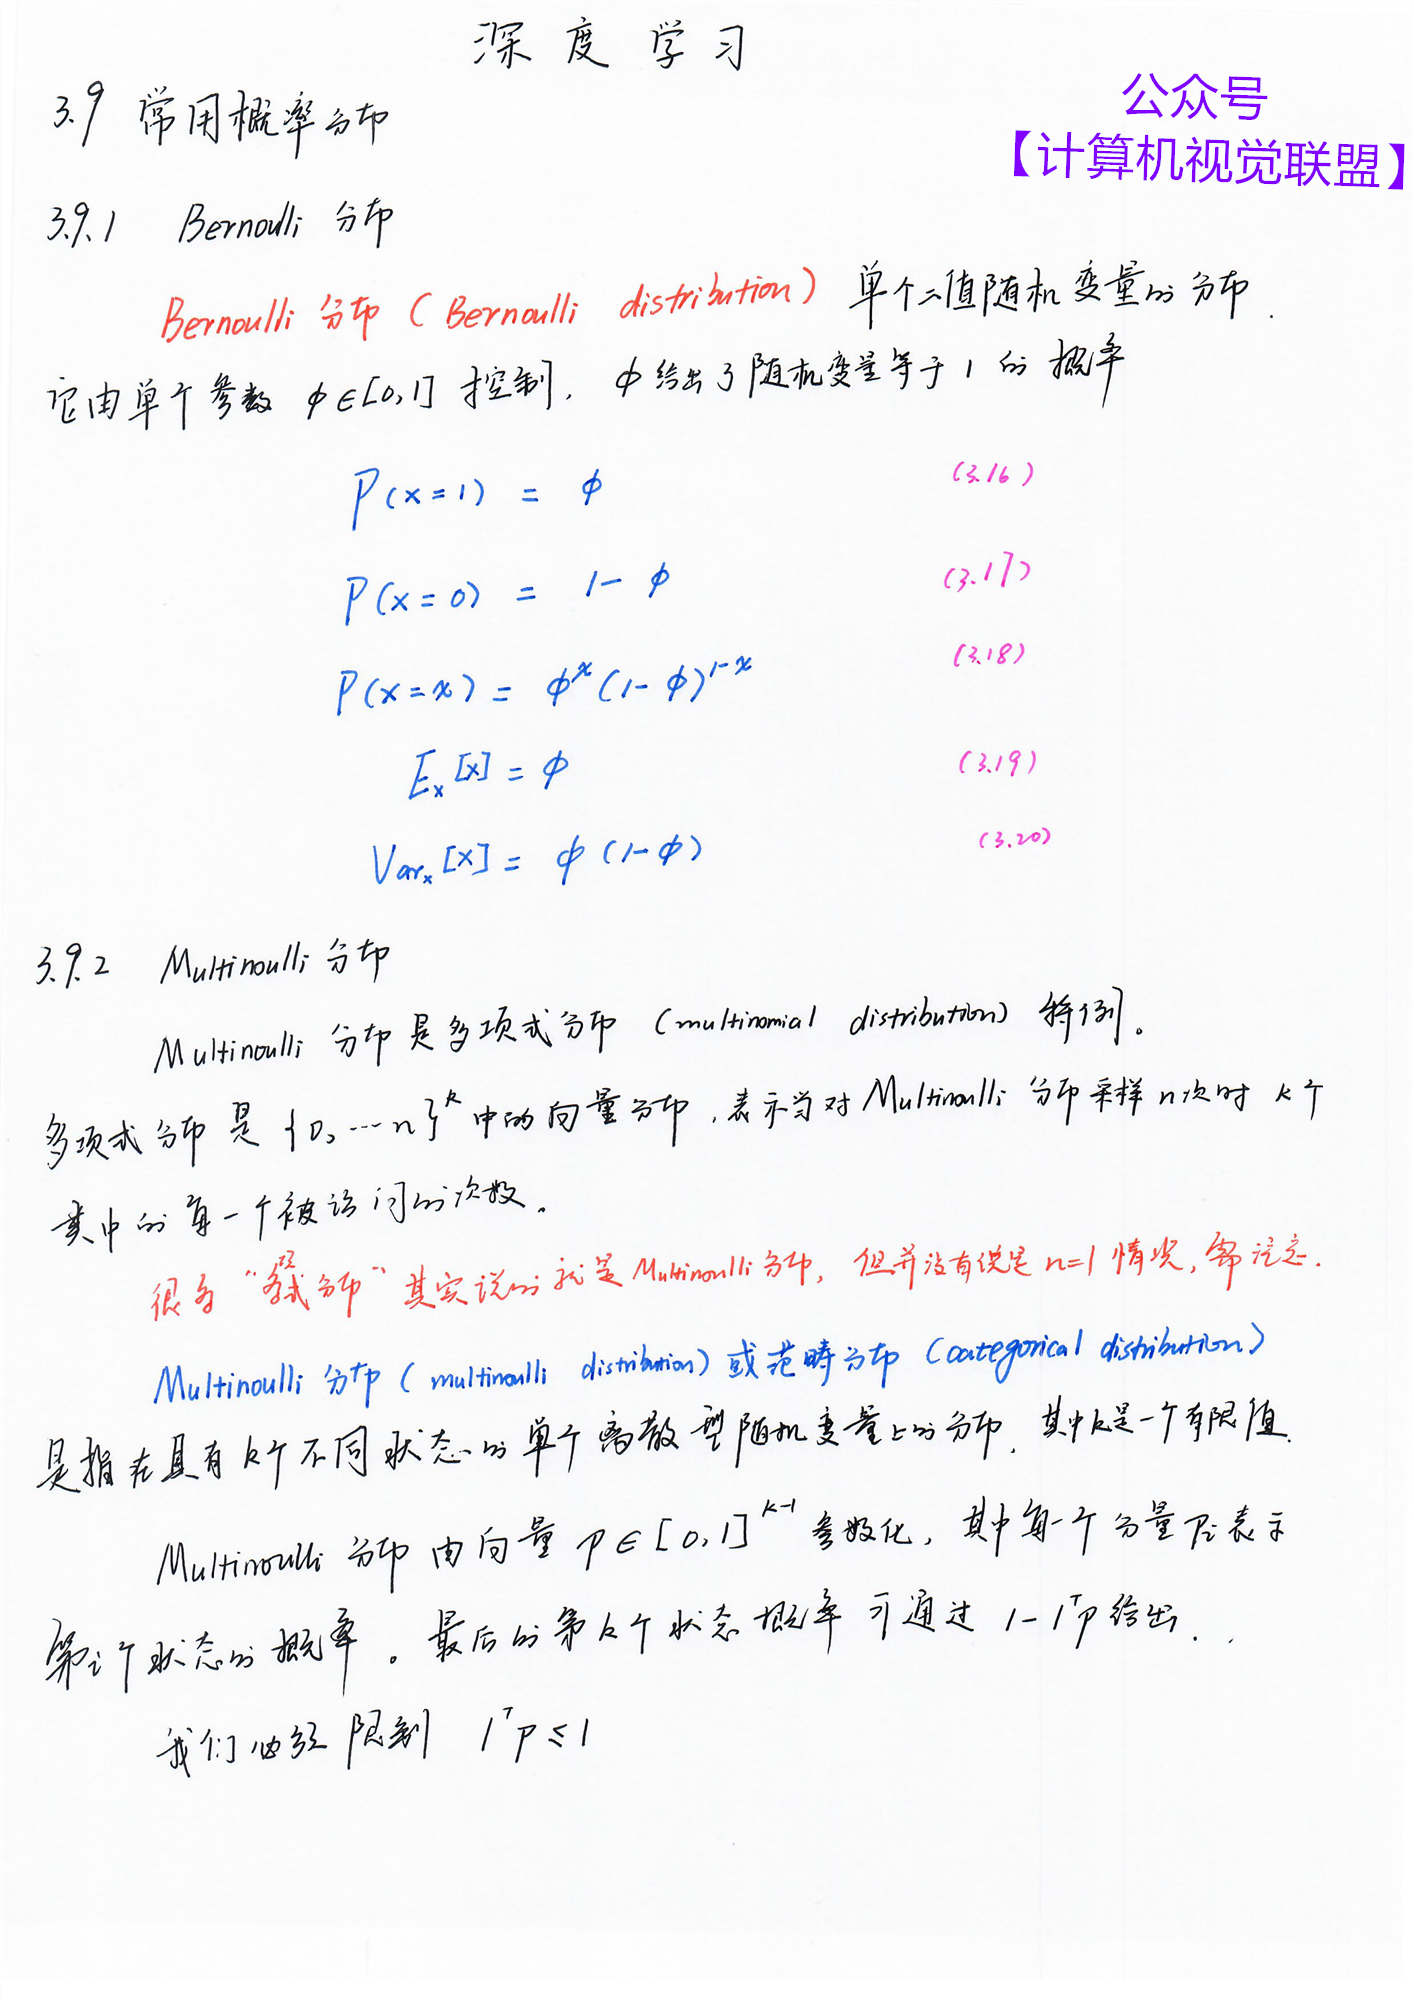 深度学习
公众号
【计算机视觉联盟】
3.9 常用概率分布
3.9.1 Bernoulli 分布
Bernoulli 分布 (Bernoulli distribution) 单个二值随机变量的分布.
它由单个参数 φ∈[0,1] 控制, φ给出了随机变量等于1的概率
P(x=1) = φ (3.16)
P(x=0) = 1-φ (3.17)
P(x=x) = φˣ(1-φ)¹⁻ˣ (3.18)
Eₓ[x] = φ (3.19)
Varₓ[x] = φ(1-φ) (3.20)
3.9.2 Multinoulli 分布
Multinoulli 分布是多项式分布 (multinomial distribution) 特例。
多项式分布是 {0,…n}ᵏ 中的向量分布,表示当对Multinoulli 分布采样n次时 k个
类中的每一个被访问的次数。
很多“多项式分布”其实说的就是Multinoulli分布, 但并没有说是n=1情况, 需注意.
Multinoulli 分布 (multinoulli distribution) 或范畴分布 (categorical distribution)
是指在具有k个不同状态的单个离散型随机变量上的分布, 其中k是一个有限值.
Multinoulli 分布由向量 p∈[0,1]ᵏ⁻¹ 参数化, 其中每一个分量pᵢ表示
第i个状态的概率。最后的第k个状态概率可通过 1-1ᵀp 给出.
我们必须限制 1ᵀp≤1